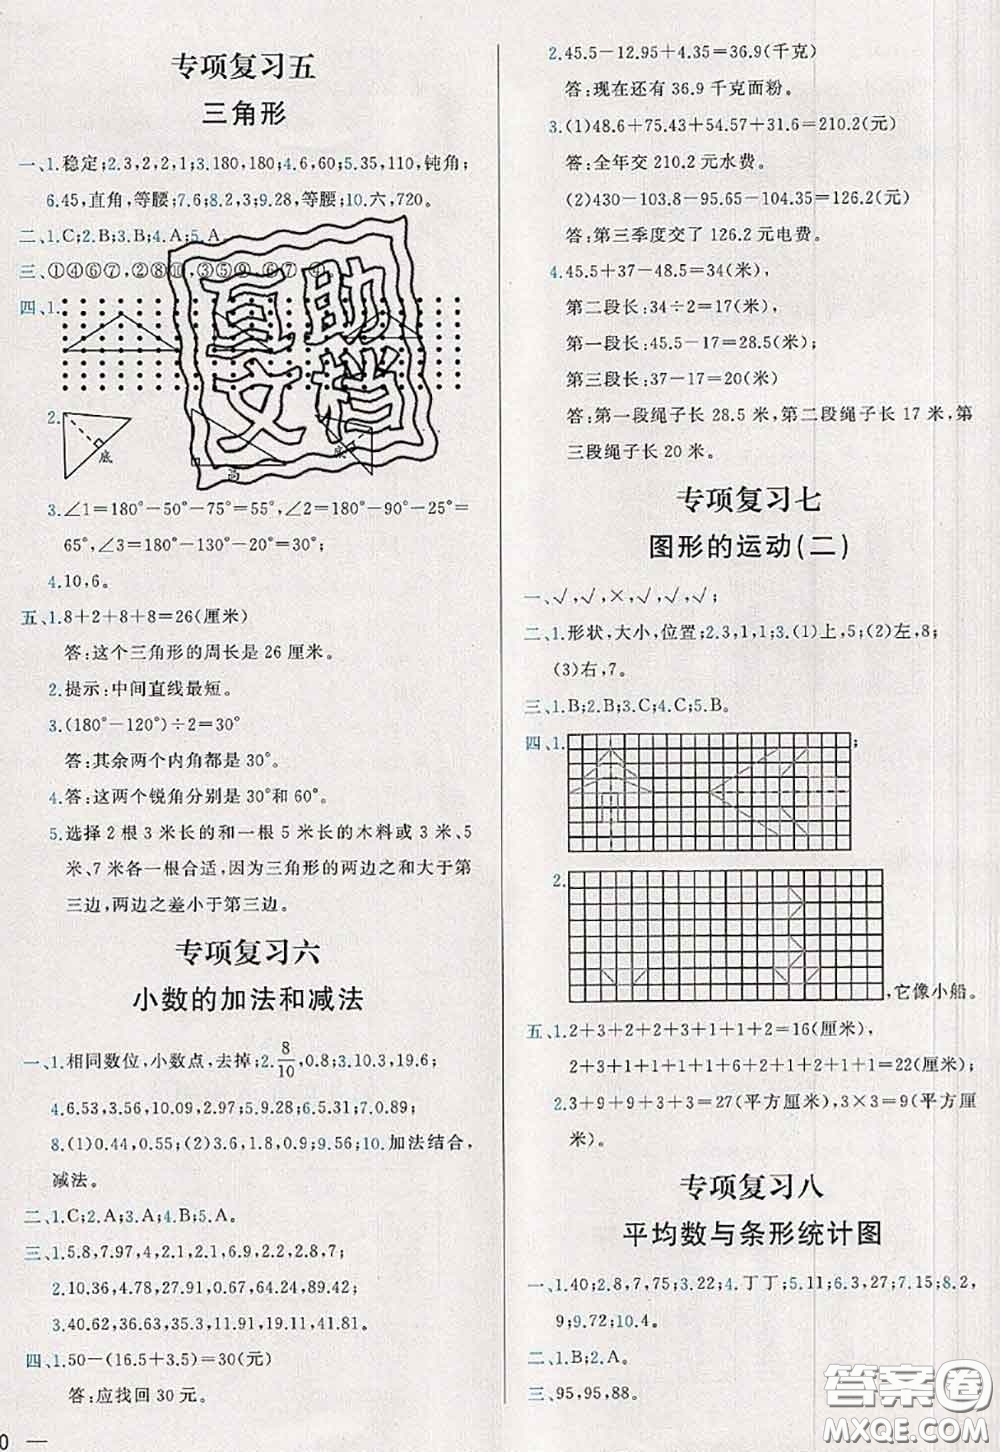 专项复习五
三角形
一、1.稳定;2.3,2,2,1;3.180,180;4.6,60;5.35,110,钝角;
6.45,直角,等腰;7.6;8.2,3;9.28,等腰;10.六,720。
二、1.C;2.B;3.B;4.A;5.A
三、①④⑥⑦,②⑧⑩,③⑤⑨,⑥⑦
四、1.
2.
底
高
3.∠1=180°-50°-75°=55°,∠2=180°-90°-25°=
65°,∠3=180°-130°-20°=30°;
4.10,6。
五、1.8+2+8+8=26(厘米)
答:这个三角形的周长是26厘米。
2.提示:中间直线最短。
3.(180°-120°)÷2=30°
答:其余两个内角都是30°。
4.答:这两个锐角分别是30°和60°。
5.选择2根3米长的和一根5米长的木料或3米、5
米、7米各一根合适,因为三角形的两边之和大于第
三边,两边之差小于第三边。
专项复习六
小数的加法和减法
一、1.相同数位,小数点,去掉;2.8/10,0.8;3.10.3,19.6;
4.6.53,3.56,10.09,2.97;5.9.28;6.5.31;7.0.89;
8.(1)0.44,0.55;(2)3.6,1.8,0.9;9.56;10.加法结合,
减法。
二、1.C;2.A;3.A;4.B;5.A。
三、1.5.8,7.97,4,2.1,20.5,4.9,1,7;
2.10.36,4.79,8.37,14.32,4.83,2.38;
3.40.62,36.63,35.3,16.27,19.11,41.81。
四、1.50-(16.5+3.5)=30(元)
答:应找回30元。
2.45.5-12.95+4.35=36.9(千克)
答:现在还有36.9千克面粉。
3.(1)48.6+75.43+54.57+31.6=210.2(元)
答:全年交210.2元水费。
(2)430-103.8-95.65-104.35=126.2(元)
答:第三季度交了126.2元电费。
4.45.5+37-48.5=34(米),
第二段长:34÷2=17(米),
第一段长:45.5-17=28.5(米),
第三段长:37-17=20(米)
答:第一段绳子长28.5米,第二段绳子长17米,第
三段绳子长20米。
专项复习七
图形的运动(二)
一、√,√,×,√,√;
二、1.形状,大小,位置;2.3,1,1;3.(1)上,5;(2)左,8;
(3)右,7。
三、1.B;2.B;3.C;4.C;5.B。
四、1.
;
2.
,它像小船。
五、1.2+3+2+2+3+1+1+2=16(厘米),
2+3+1+1+1+5+1+1+1+3+1+2=22(厘米);
2.3+9+9+3+3=27(平方厘米),3×3=9(平方厘
米)。
专项复习八
平均数与条形统计图
一、1.40;2.8,7,75;3.22;4.丁丁;5.11;6.3,27;7.15;8.2,
9;9.72;10.4。
二、1.B;2.A。
三、95,95,88。
互助
文档
答案圈
MXQE.COM